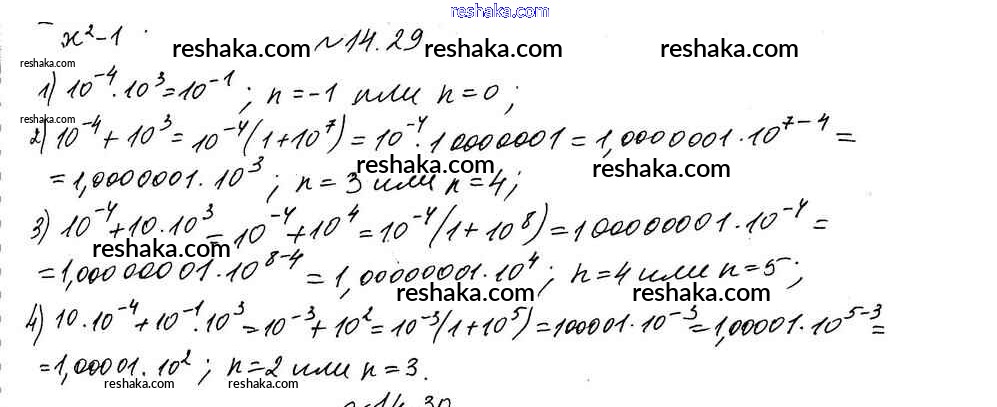 reshaka.com
x²-1
reshaka.com №14.29 reshaka.com reshaka.com
reshaka.com
1) 10⁻⁴·10³=10⁻¹; n=-1 или n=0;
reshaka.com
2) 10⁻⁴+10³=10⁻⁴(1+10⁷)=10⁻⁴·10000001=1,0000001·10⁷⁻⁴=
reshaka.com reshaka.com
=1,0000001·10³; n=3 или n=4;
3) 10⁻⁴+10·10³=10⁻⁴+10⁴=10⁻⁴(1+10⁸)=100000001·10⁻⁴=
reshaka.com
=1,00000001·10⁸⁻⁴=1,00000001·10⁴; n=4 или n=5;
reshaka.com reshaka.com
4) 10·10⁻⁴+10⁻¹·10³=10⁻³+10²=10⁻³(1+10⁵)=100001·10⁻³=1,00001·10⁵⁻³=
=1,00001·10²; n=2 или n=3.
reshaka.com reshaka.com